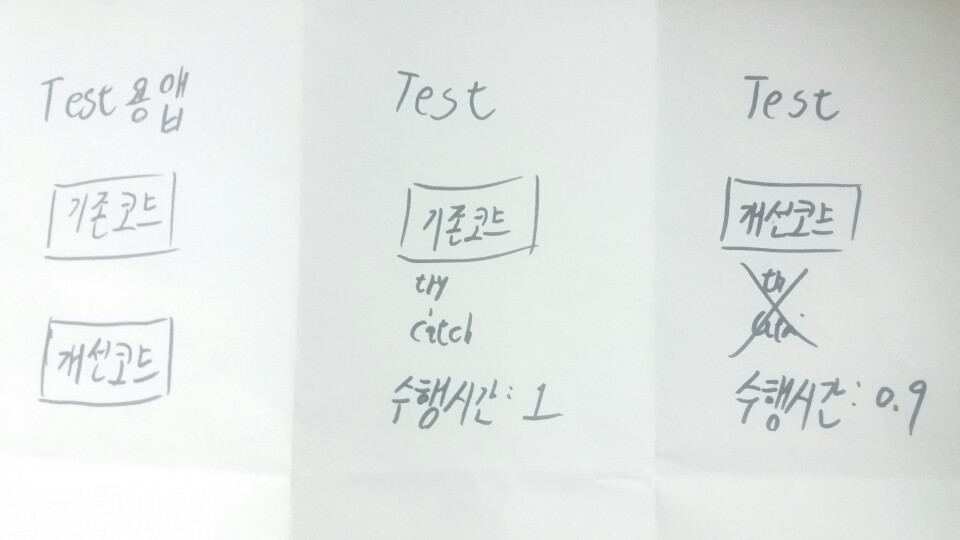 Test용 앱
기존코드
개선코드
Test
기존코드
try
catch
수행시간: 1
Test
개선코드
수행시간: 0.9